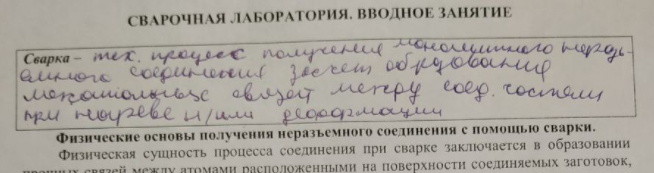 СВАРОЧНАЯ ЛАБОРАТОРИЯ. ВВОДНОЕ ЗАНЯТИЕ
Сварка – тех. процесс получения монолитного неразъ-
ёмного соединения за счет образования
связей между соед. частями
при нагреве и/или деформации
Физические основы получения неразъемного соединения с помощью сварки.
Физическая сущность процесса соединения при сварке заключается в образовании
прочных связей между атомами расположенными на поверхности соединяемых заготовок,